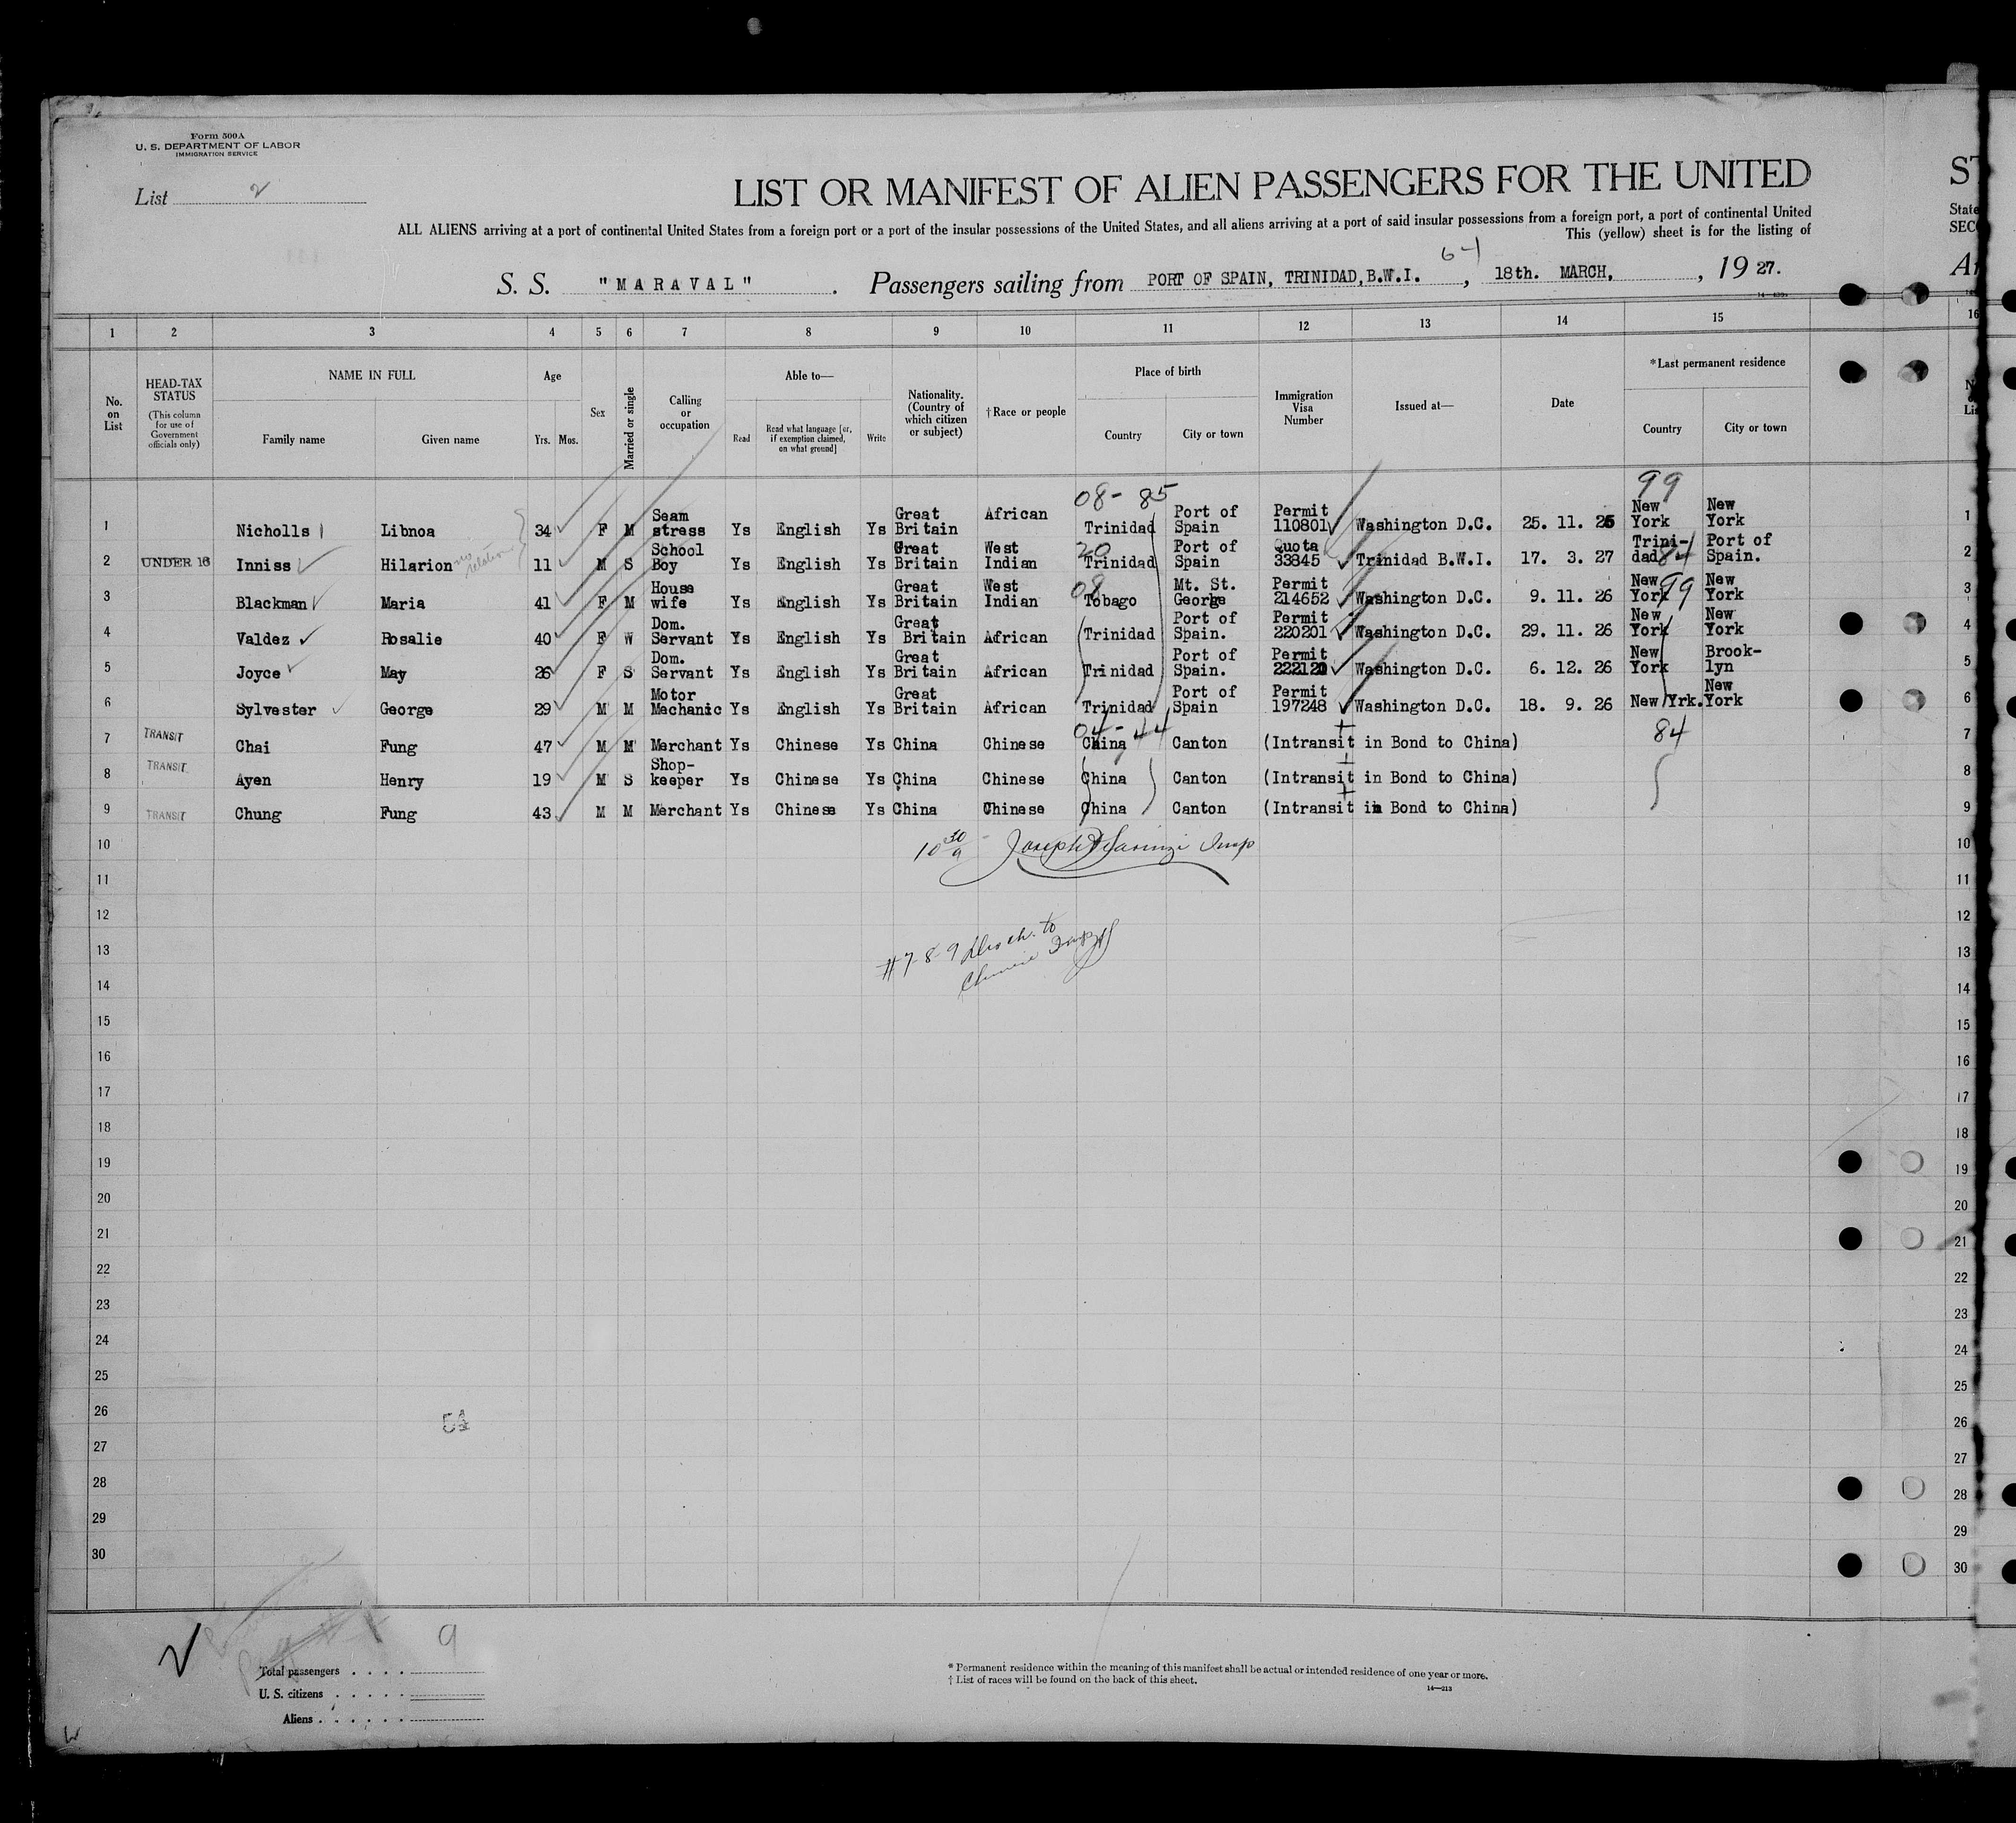 Form 500A
U. S. DEPARTMENT OF LABOR
IMMIGRATION SERVICE
List 2
LIST OR MANIFEST OF ALIEN PASSENGERS FOR THE UNITED
ST
ALL ALIENS arriving at a port of continental United States from a foreign port or a port of the insular possessions of the United States, and all aliens arriving at a port of said insular possessions from a foreign port, a port of continental United
State
This (yellow) sheet is for the listing of
SEC
6-1
S. S. "MARAVAL". Passengers sailing from PORT OF SPAIN, TRINIDAD, B.W.I., 18th. MARCH, , 1927.
1 2 3 4 5 6 7 8 9 10 11 12 13 14 15 16
No. on List
HEAD-TAX STATUS (This column for use of Government officials only)
NAME IN FULL
Family name Given name
Age
Yrs. Mos.
Sex
Married or single
Calling or occupation
Able to—
Read
Read what language [or, if exemption claimed, on what ground]
Write
Nationality. (Country of which citizen or subject)
†Race or people
Place of birth
Country City or town
Immigration Visa Number
Issued at—
Date
*Last permanent residence
Country City or town
08- 85 99
1 Nicholls Libnoa 34 F M Seam stress Ys English Ys Great Britain African Trinidad Port of Spain Permit 110801 Washington D.C. 25. 11. 26 New York New York 1
no relation
20 84
2 UNDER 16 Inniss Hilarion 11 M S School Boy Ys English Ys Great Britain West Indian Trinidad Port of Spain Quota 33845 Trinidad B.W.I. 17. 3. 27 Trini-dad Port of Spain. 2
08 99
3 Blackman Maria 41 F M House wife Ys English Ys Great Britain West Indian Tobago Mt. St. George Permit 214652 Washington D.C. 9. 11. 26 New York New York 3
4 Valdez Rosalie 40 F W Dom. Servant Ys English Ys Great Britain African Trinidad Port of Spain. Permit 220201 Washington D.C. 29. 11. 26 New York New York 4
5 Joyce May 26 F S Dom. Servant Ys English Ys Great Britain African Trinidad Port of Spain. Permit 222120 Washington D.C. 6. 12. 26 New York Brook-lyn 5
6 Sylvester George 29 M M Motor Mechanic Ys English Ys Great Britain African Trinidad Port of Spain Permit 197248 Washington D.C. 18. 9. 26 New Yrk. New York 6
04-44 84
7 TRANSIT Chai Fung 47 M M Merchant Ys Chinese Ys China Chinese China Canton (Intransit in Bond to China) 7
8 TRANSIT Ayen Henry 19 M S Shop-keeper Ys Chinese Ys China Chinese China Canton (Intransit in Bond to China) 8
9 TRANSIT Chung Fung 43 M M Merchant Ys Chinese Ys China Chinese China Canton (Intransit in Bond to China) 9
10 10 30 a Joseph Insp 10
11 11
12 12
#7-8-9 Disch. to
13 13
Chinese Insp
14 14
15 15
16 16
17 17
18 18
19 19
20 20
21 21
22 22
23 23
24 24
25 25
26 54 26
27 27
28 28
29 29
30 30
9
Total passengers
U. S. citizens
Aliens
* Permanent residence within the meaning of this manifest shall be actual or intended residence of one year or more.
† List of races will be found on the back of this sheet.
14—213